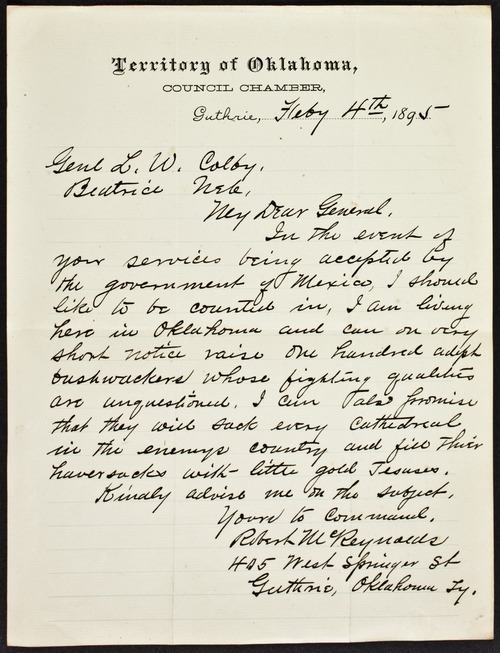 Territory of Oklahoma,
COUNCIL CHAMBER,
Guthrie, Feby 4th, 1895
Genl L. W. Colby.
Beatrice Neb,
My Dear General.
In the event of
your services being accepted by
the government of Mexico, I should
like to be counted in, I am living
here in Oklahoma and can on very
short notice raise one hundred adept
bushwackers whose fighting qualities
are unquestioned. I can also promise
that they will sack every Cathedreal
in the enemys country and fill thier
haversacks with little gold Jesuses.
Kindly advise me on the subject.
Yours to Command.
Robert McReynolds
405 West Springer St
Guthrie, Oklahoma Ty.